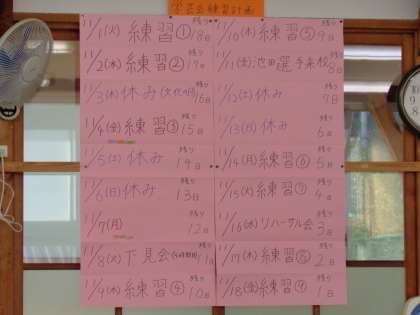 練習計画
11/1(火) 練習① 残り18日
11/2(水) 練習② 残り17日
11/3(木) 休み(文化の日) 残り16日
11/4(金) 練習③ 残り15日
11/5(土) 休み 19日
11/6(日) 休み 残り13日
11/7(月) 残り12日
11/8(火) 下見会(5時間目) 残り
11/9(水) 練習④ 残り10日
11/10(木) 練習⑤ 残り9日
11/11(金) 池田選手来校 残り8日
11/12(土) 休み 残り7日
11/13(日) 休み 残り6日
11/14(月) 練習⑥ 残り5日
11/15(火) 練習⑦ 残り4日
11/16(水) リハーサル会 残り3日
11/17(木) 練習⑧ 残り2日
11/18(金) 練習⑨ 残り1日
10
9
8